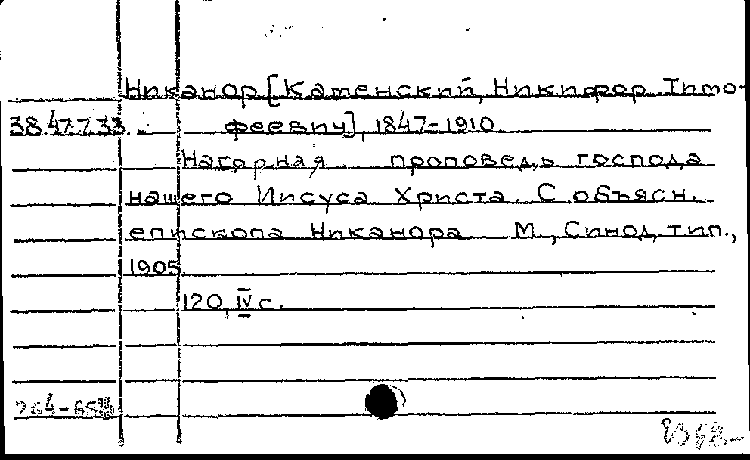 Никанор [Каменский, Никифор Тимо-
38.47.7.33. феевич], 1847-1910.
Нагорная проповедь господа
нашего Иисуса Христа. С объясн.
епископа Никанора М., Синод. тип.,
1905
120, IV с.